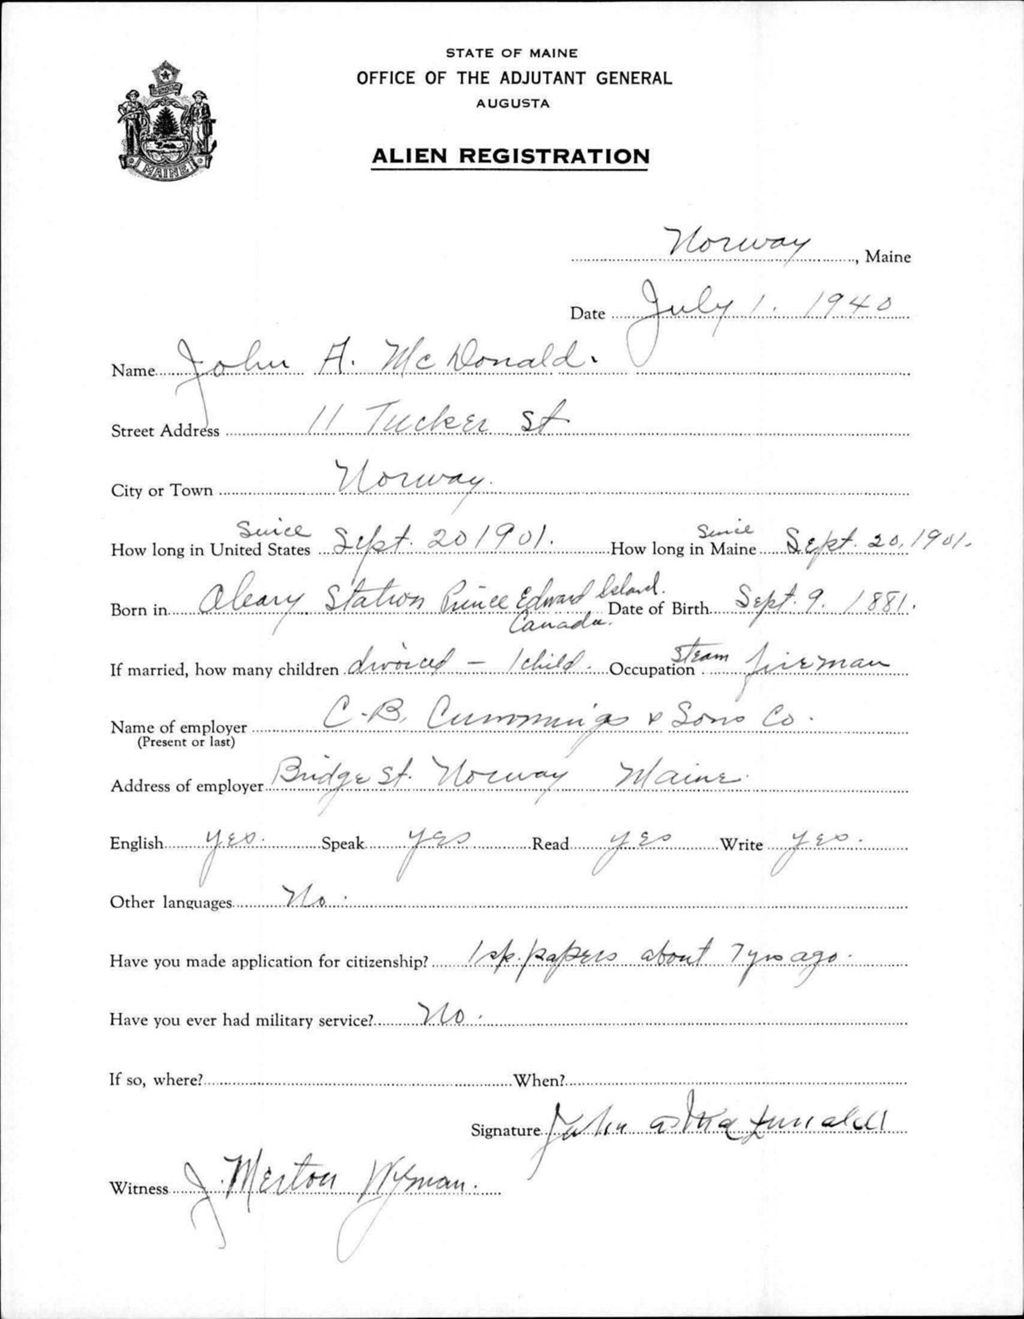 STATE OF MAINE
OFFICE OF THE ADJUTANT GENERAL
AUGUSTA
ALIEN REGISTRATION
MAINE
Norway, Maine
Date July 1. 1940
Name John A. McDonald.
Street Address 11 Tucker St
City or Town Norway.
How long in United States Since Sept. 20 1901. How long in Maine Since Sept. 20, 1901.
Born in Oleary Station Prince Edward Island. Canada. Date of Birth Sept. 9. 1881.
If married, how many children divorced - 1 child. Occupation Steam fireman
Name of employer C. B. Cummings & Sons Co.
(Present or last)
Address of employer Bridge St. Norway Maine.
English yes. Speak yes Read yes Write yes.
Other languages No.
Have you made application for citizenship? 1st. papers about 7 yrs ago.
Have you ever had military service? No.
If so, where? When?
Signature John a
Witness J. Merton Wyman.